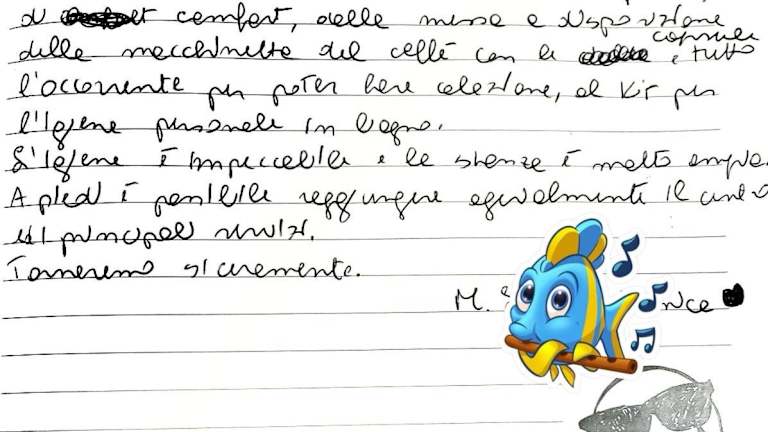 di comfort, dalla messa a disposizione
della macchinetta del caffè con le capsule e tutto
l'occorrente per poter fare colazione, al kit per
l'igiene personale in bagno.
L'igiene è impeccabile e la stanza è molto ampia.
A piedi è possibile raggiungere agevolmente il centro
ed i principali servizi.
Torneremo sicuramente.
M.